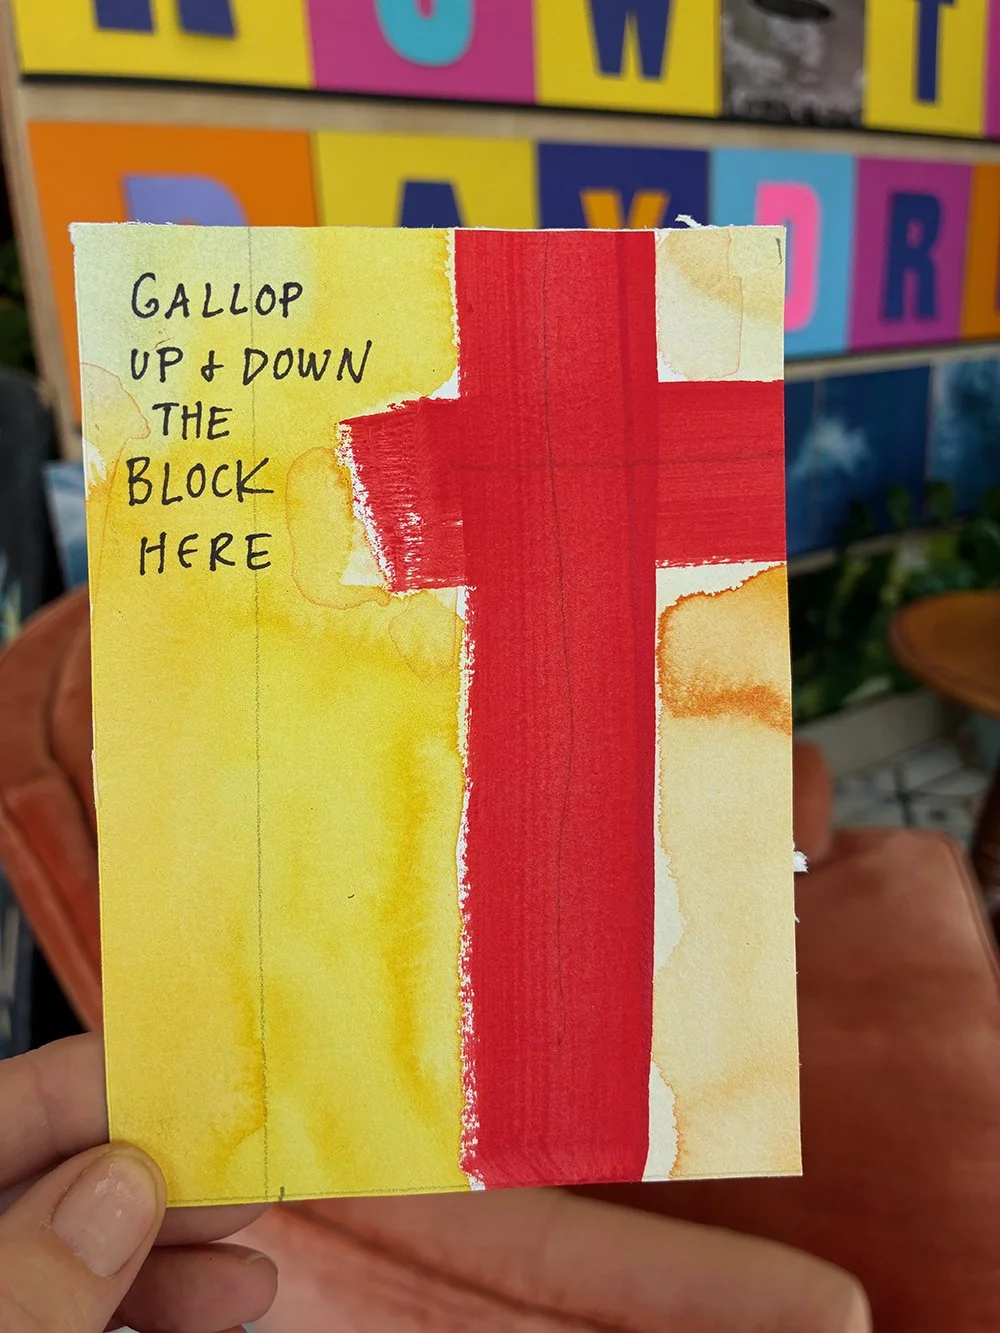 W T
DAYDR
GALLOP
UP + DOWN
THE
BLOCK
HERE